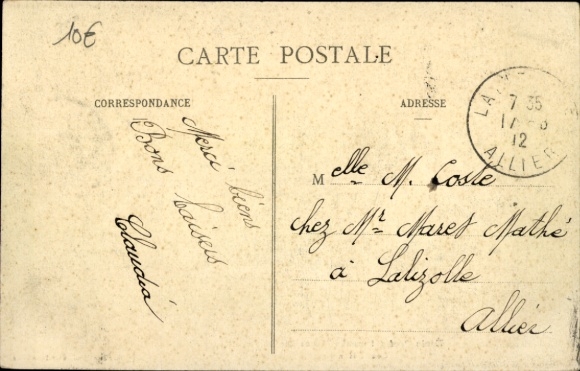 10€
CARTE POSTALE
CORRESPONDANCE
ADRESSE
Merci biens
Bons baisers
Claudia
Melle M. Coste
chez Mr Maret Mathé
à Lalizolle
Allier
7 35
12
ALLIER